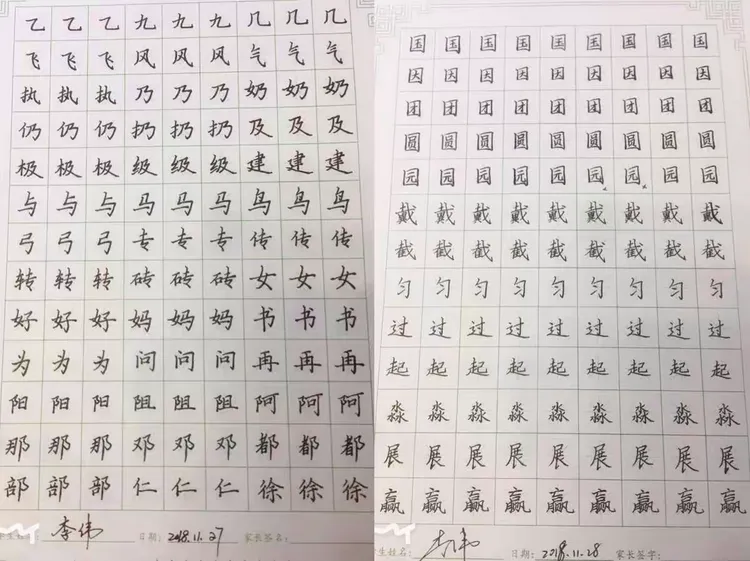 乙乙乙九九九几几几
飞飞飞风风风气气气
执执执乃乃乃奶奶奶
仍仍仍扔扔扔及及及
极极极级级级建建建
与与与马马马鸟鸟鸟
弓弓弓专专专传传传
转转转砖砖砖女女女
好好好妈妈妈书书书
为为为问问问再再再
阳阳阳阻阻阻阿阿阿
那那那邓邓邓都都都
部部部仁仁仁徐徐徐
学生姓名: 李伟 日期: 2018.11.27 家长签名:
国国国国国国国国国
因因因因因因因因因
团团团团团团团团团
圆圆圆圆圆圆圆圆圆
园园园园园园园园园
戴戴戴戴戴戴戴戴戴
截截截截截截截截截
匀匀匀匀匀匀匀匀匀
过过过过过过过过过
起起起起起起起起起
淼淼淼淼淼淼淼淼淼
展展展展展展展展展
赢赢赢赢赢赢赢赢赢
学生姓名: 李伟 日期: 2018.11.28 家长签字: